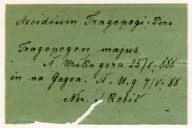 Aecidium Tragopogi Pers
Tragopogon majus
A. Urška gora 25/V. 888
in na Gogca. A. U. g 7/V. 88
Nm. J. Robič